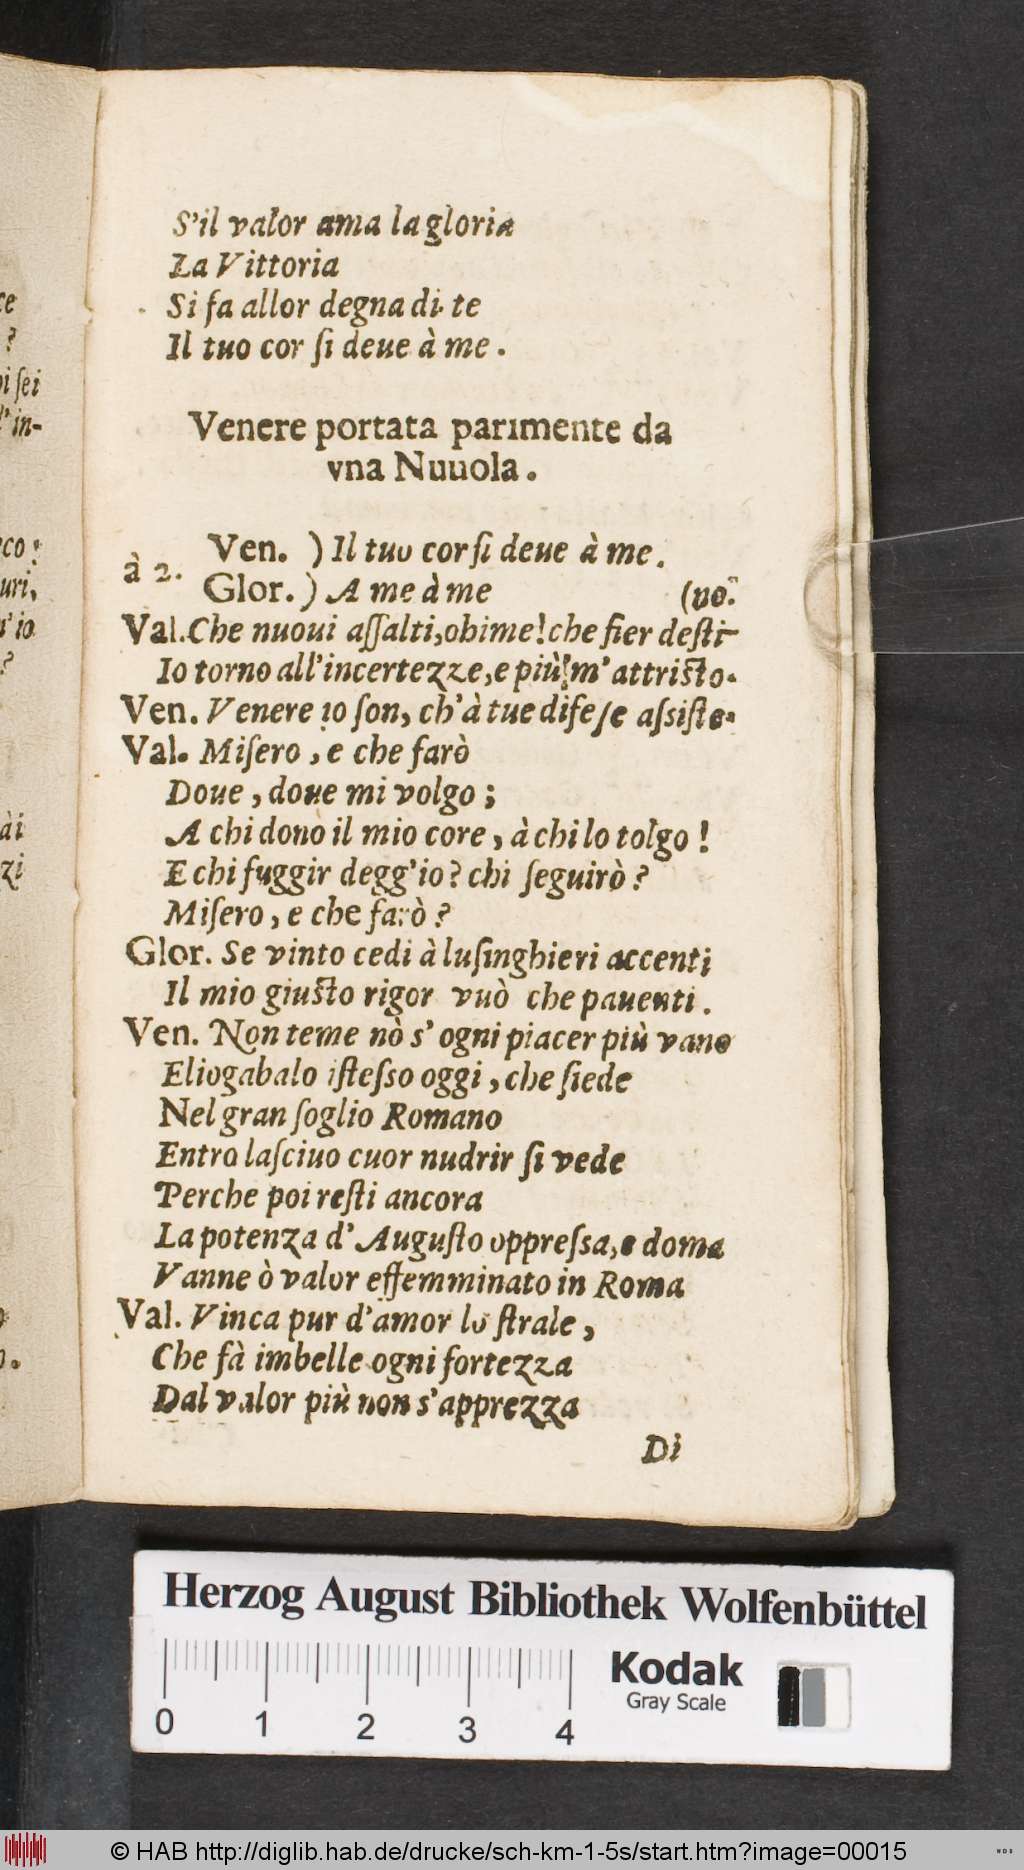 S'il valor ama la gloria
La Vittoria
Si fa allor degna di te
Il tuo cor ſi deue à me.
Venere portata parimente da
vna Nuuola.
à 2. Ven. ) Il tuo cor ſi deue à me.
Glor. ) A me à me (no?
Val. Che nuoui aſſalti, ohime! che fier deſti-
Io torno all'incertezze, e più m'attriſto.
Ven. Venere io ſon, ch'à tue difeſe aſsiſte.
Val. Miſero, e che farò
Doue, doue mi volgo;
A chi dono il mio core, à chi lo tolgo!
E chi fuggir degg'io? chi ſeguirò?
Miſero, e che farò?
Glor. Se vinto cedi à luſinghieri accenti
Il mio giuſto rigor vuò che pauenti.
Ven. Non teme nò s'ogni piacer più vano
Eliogabalo iſteſso oggi, che ſiede
Nel gran ſoglio Romano
Entro laſciuo cuor nudrir ſi vede
Perche poi reſti ancora
La potenza d'Auguſto oppreſsa, e doma
Vanne ò valor effemminato in Roma
Val. Vinca pur d'amor lo ſtrale,
Che fà imbelle ogni fortezza
Dal valor più non s'apprezza
Di
ce
?
oi ſei
d'in-
eco:
uri,
u'io
?
ài
zi
Herzog August Bibliothek Wolfenbüttel
Kodak
Gray Scale
0 1 2 3 4
© HAB http://diglib.hab.de/drucke/sch-km-1-5s/start.htm?image=00015